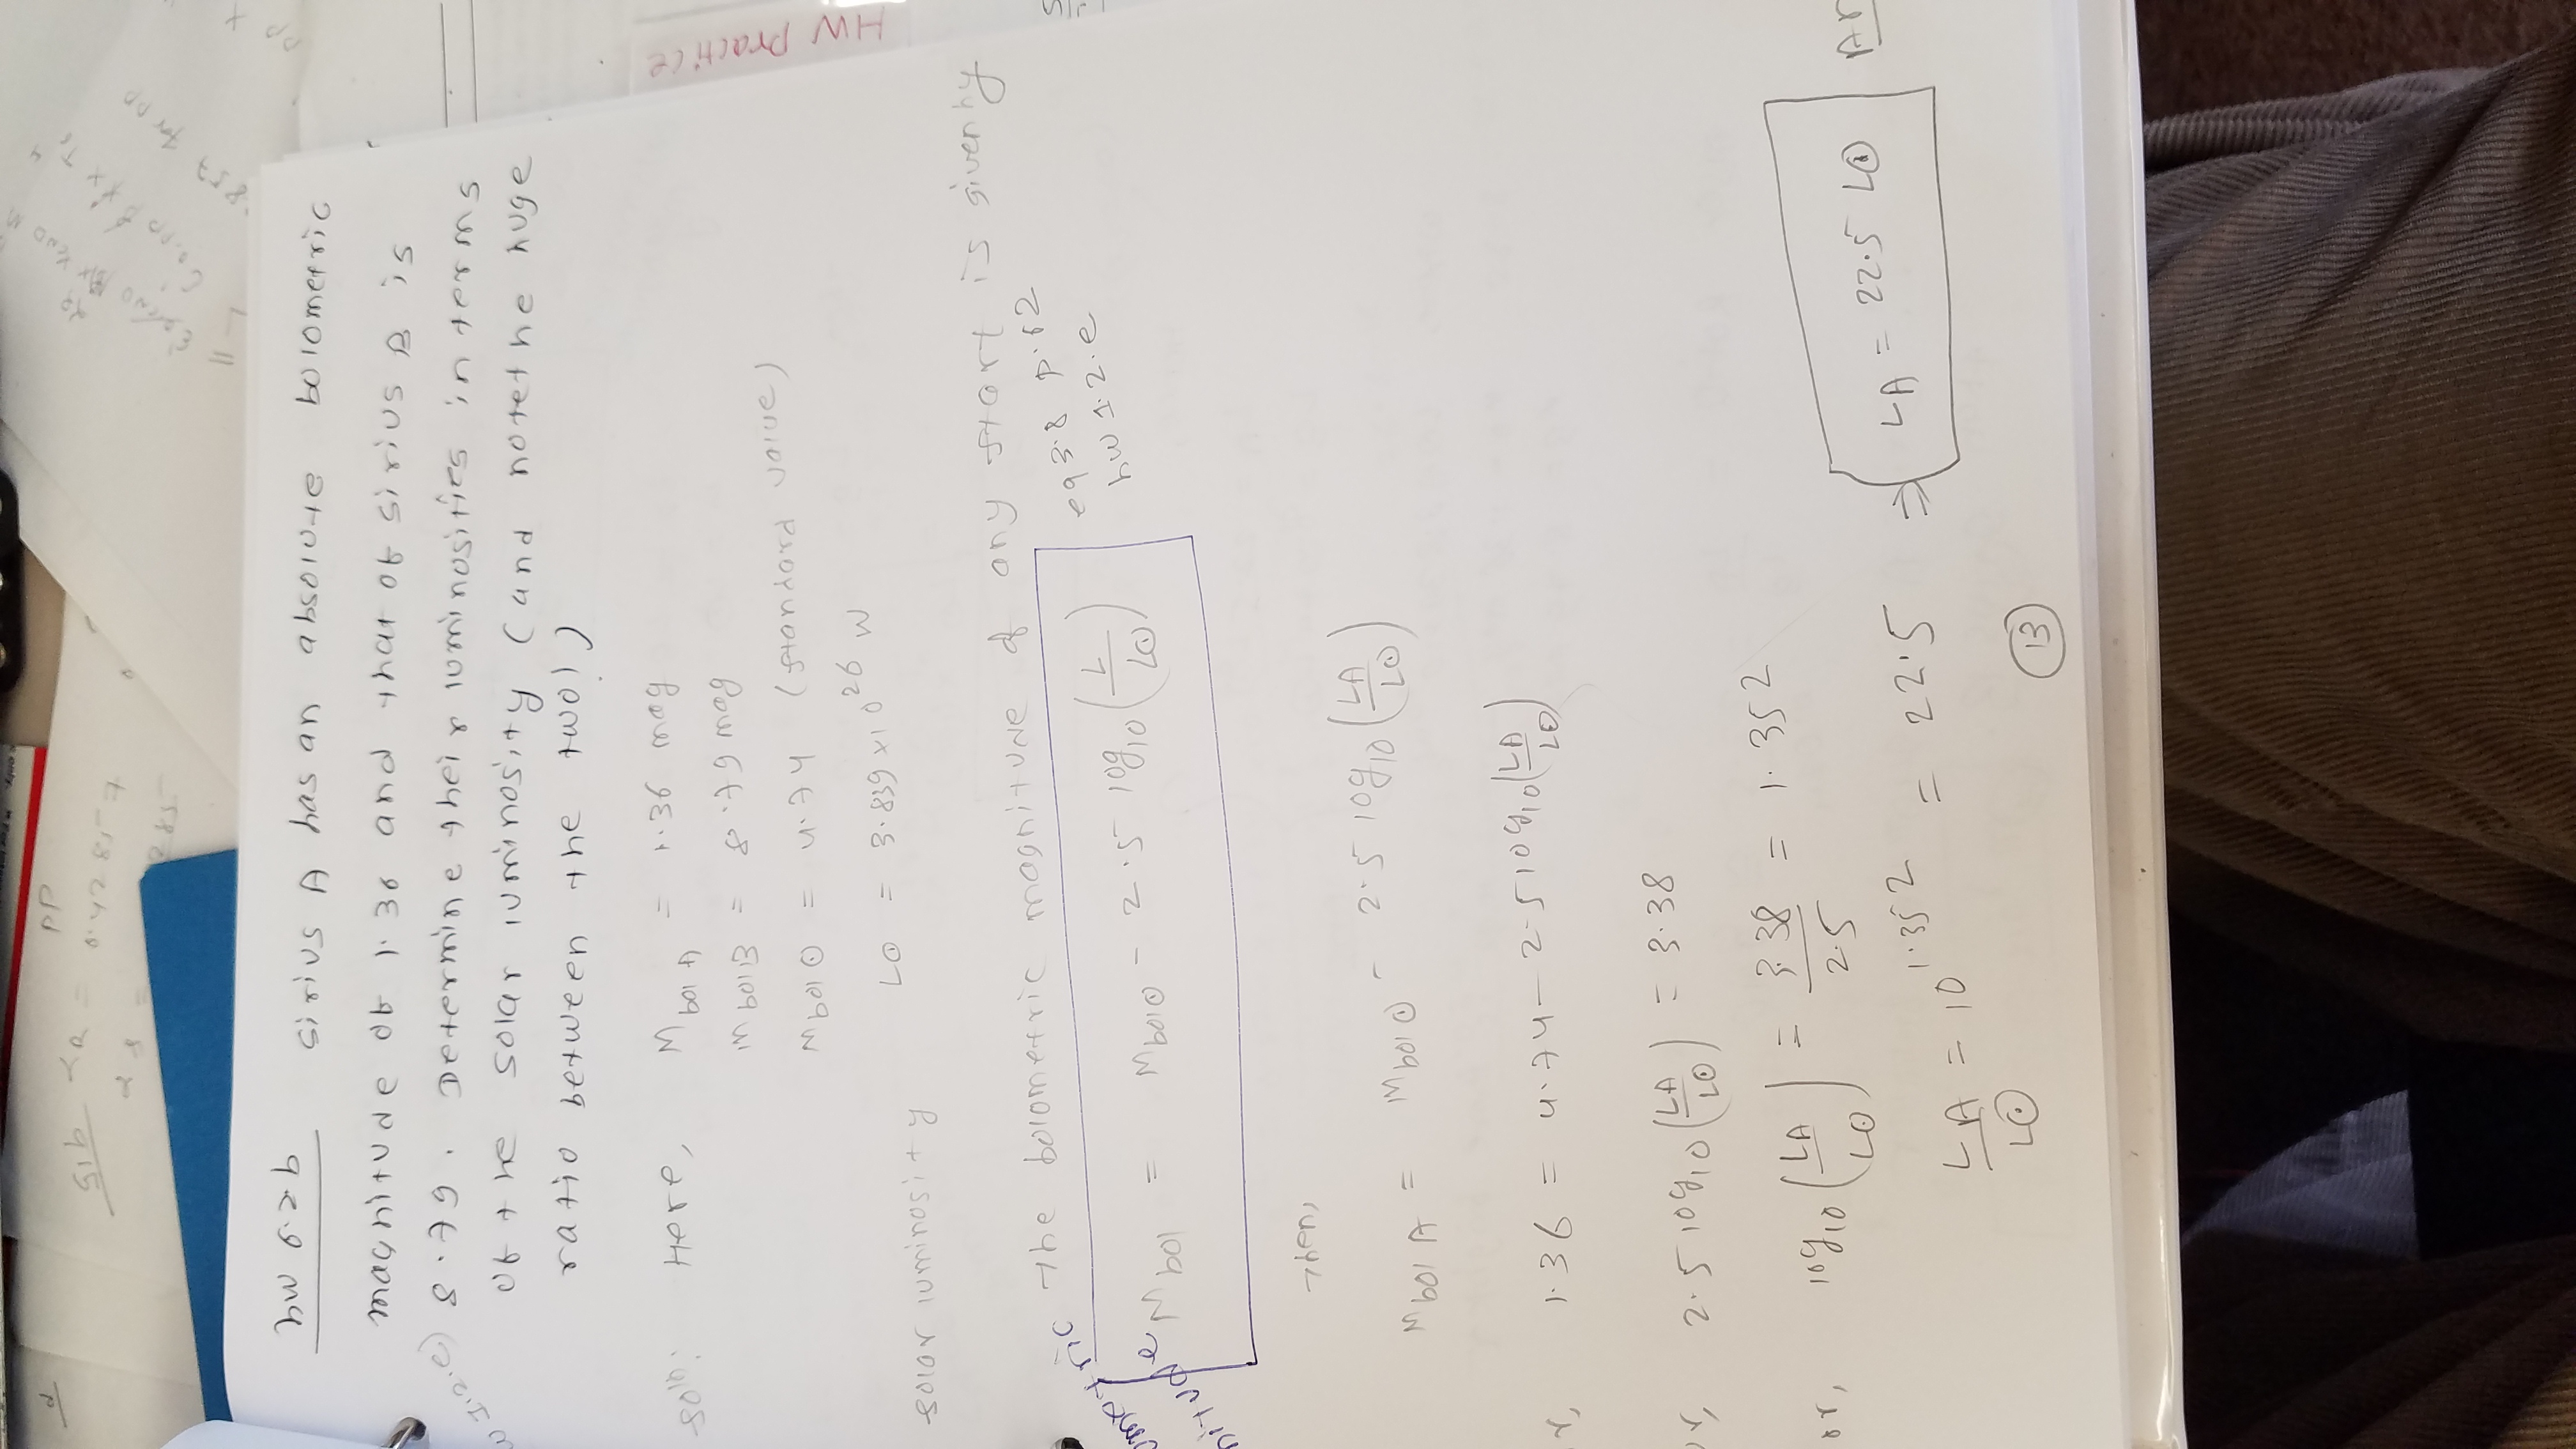 51b
PP
0.42857
285
hw 6.2b Sirius A has an absolute bolometric
magnitude of 1.36 and that of sirius B is
8.79. Determine their luminosities in terms
of the solar luminosity (and note the huge
ratio between the two!)
soln: Here, M bol A = 1.36 mag
M bol B = 8.79 mag
M bol ⊙ = 4.74 (standard value)
solar luminosity L⊙ = 3.839 x 10^26 W
The bolometric magnitude of any start is given by
M bol = M bol⊙ - 2.5 log10 (L/L⊙)
eq 3.8 p.62
hw 1.2.e
Then,
M bol A = M bol ⊙ - 2.5 log10 (LA/L⊙)
1.36 = 4.74 - 2.5 log10 (LA/L⊙)
or, 2.5 log10 (LA/L⊙) = 3.38
or, log10 (LA/L⊙) = 3.38/2.5 = 1.352
LA/L⊙ = 10^1.352 = 22.5 ⇒ LA = 22.5 L⊙
13
HW practice